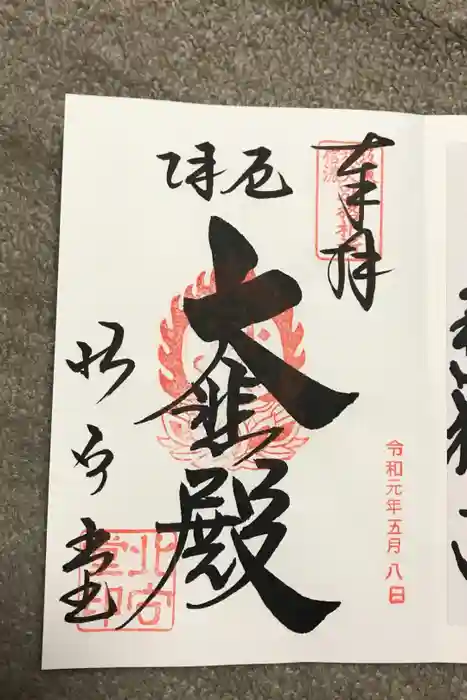 奉拝
令和元年五月八日
厄除
大悲殿
北向堂
北向
堂印